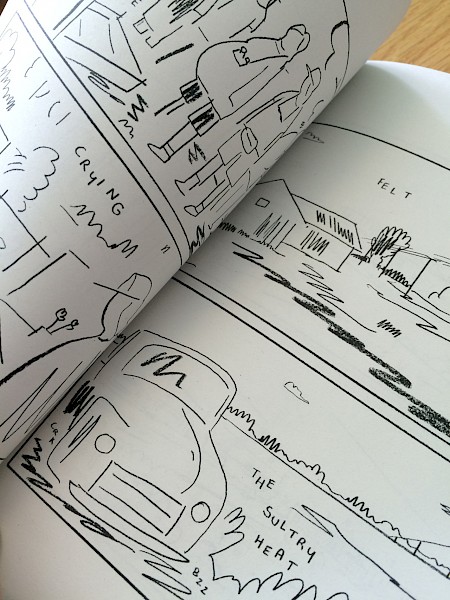 CRYING
FELT
THE
SULTRY
HEAT
B22